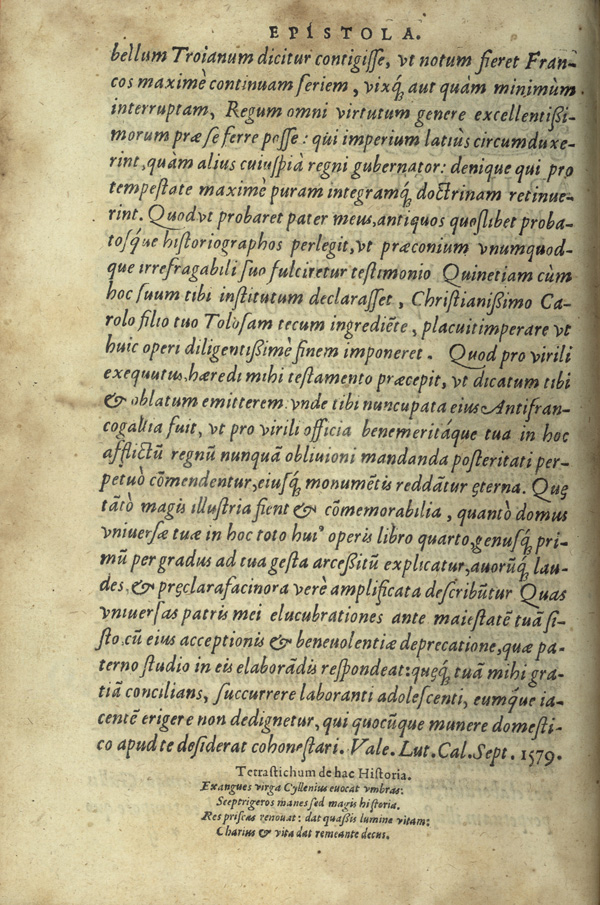 EPISTOLA.
bellum Troianum dicitur contigisse, vt notum fieret Fran-
cos maximè continuam seriem, vixq́; aut quàm minimùm
interruptam, Regum omni virtutum genere excellentißi-
morum præ se ferre posse: qui imperium latiùs circumduxe-
rint, quàm alius cuiuspiã regni gubernator: denique qui pro
tempestate maximè puram integramq́; doctrinam retinue-
rint. Quod vt probaret pater meus, antiquos quoslibet proba-
tosq́ue historiographos perlegit, vt præconium vnumquod-
que irrefragabili suo fulciretur testimonio Quinetiam cùm
hoc suum tibi institutum declarasset, Christianißimo Ca-
rolo filio tuo Tolosam tecum ingrediẽte, placuit imperare vt
huic operi diligentißimè finem imponeret. Quod pro virili
exequutus, hæredi mihi testamento præcepit, vt dicatum tibi
& oblatum emitterem vnde tibi nuncupata eius Antifran-
cogallia fuit, vt pro virili officia benemeritáque tua in hoc
afflictũ regnũ nunquã obliuioni mandanda posteritati per-
petuò cõmendentur, eiusq́; monumẽtis reddãtur ęterna. Quę
tãtò magis illustria fient & cõmemorabilia, quantò domus
vniuersæ tuæ in hoc toto huiꝰ operis libro quarto, genusq́; pri-
mũ per gradus ad tua gesta arceßitũ explicatur, auorũq́; lau-
des, & pręclara facinora verè amplificata describũtur Quas
vniuersas patris mei elucubrationes ante maiestatẽ tuã si-
sto, cũ eius acceptionis & beneuolentiæ deprecatione, quæ pa-
terno studio in eis elaborãdis respondeat: quęq́; tuã mihi gra-
tiã concilians, succurrere laboranti adolescenti, eumq́ue ia-
centẽ erigere non dedignetur, qui quocũque munere domesti-
co apud te desiderat cohonestari. Vale. Lut. Cal. Sept. 1579.
Tetrastichum de hac Historia.
Exangues virga Cyllenius euocat vmbras:
Sceptrigeros manes sed magis historia.
Res priscas renouat: dat quaßis lumine vitam:
Charius & vita dat remeante decus.